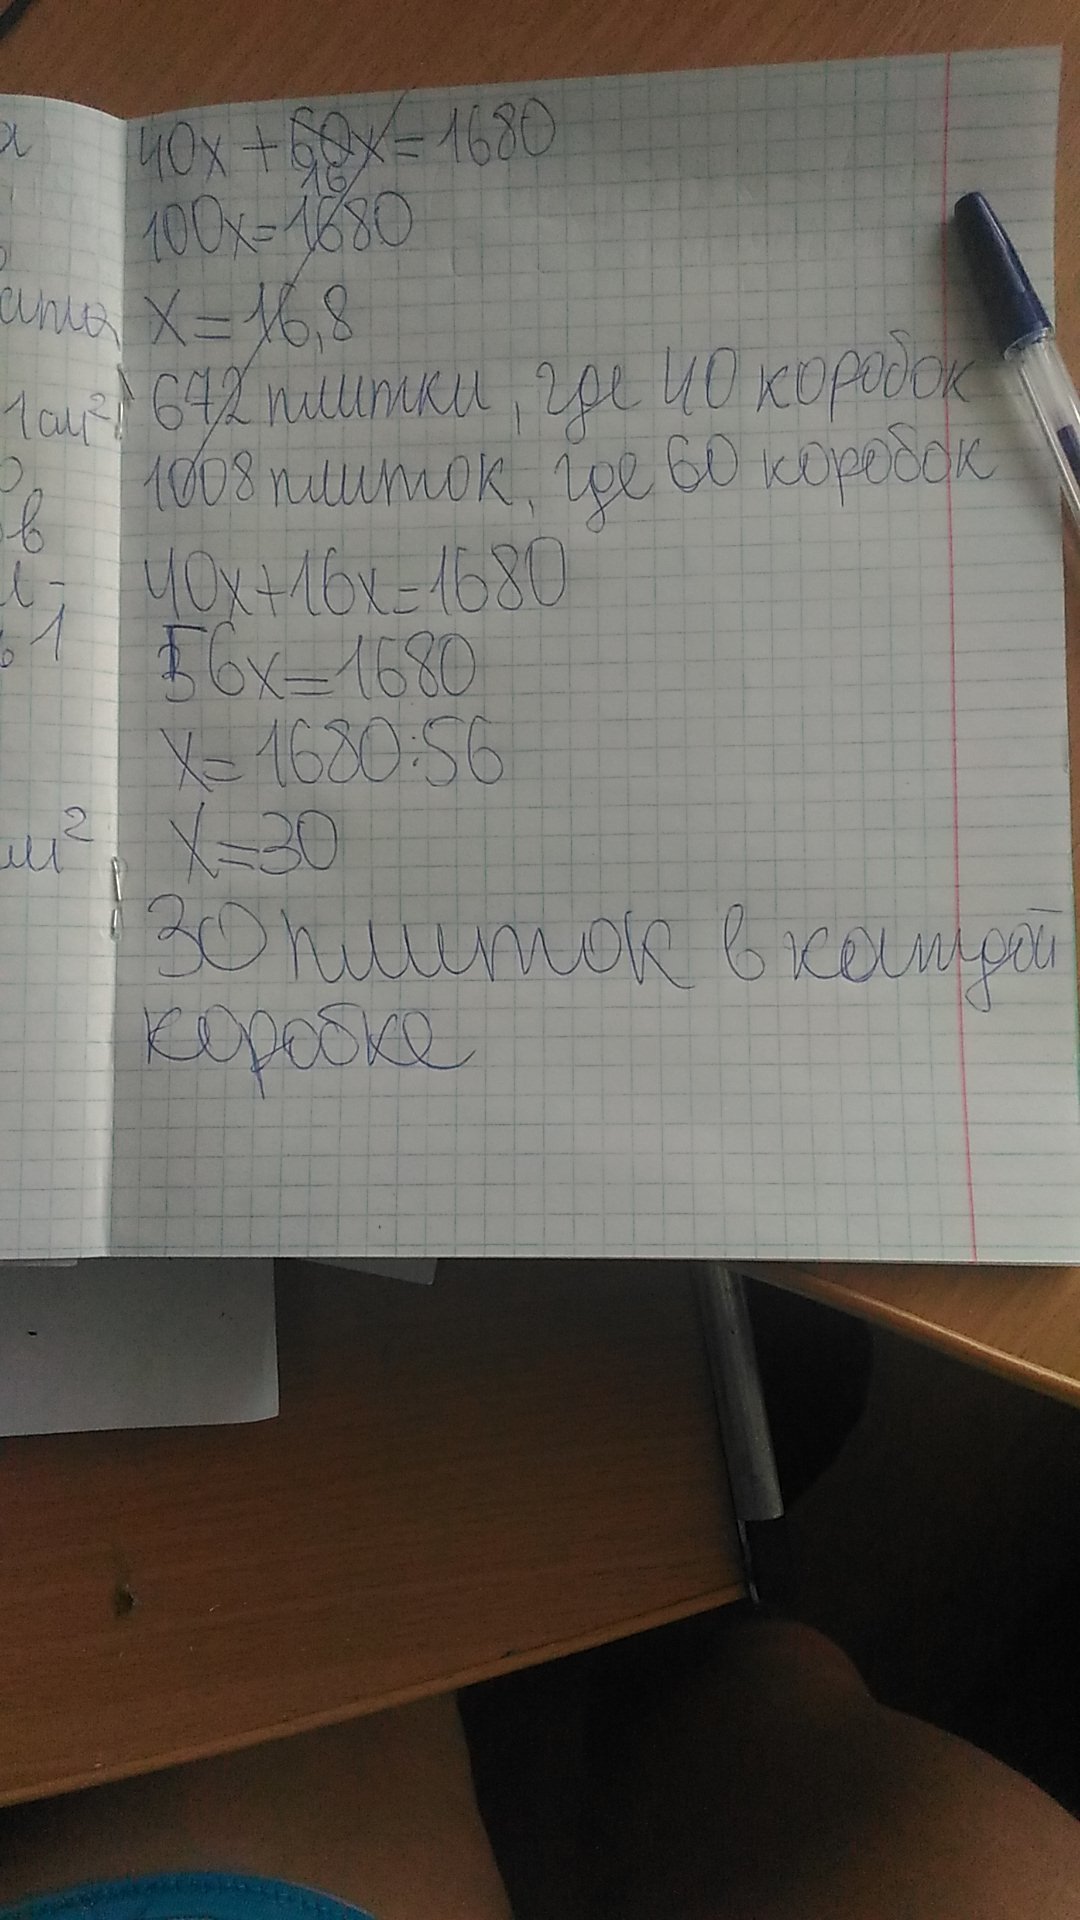 40x + 60x = 1680
16
100x = 1680
x = 16,8
672 плитки, где 40 коробок
1008 плиток, где 60 коробок
40x+16x=1680
56x=1680
x=1680:56
x=30
30 плиток в каждой
коробке
1см²
в
1
м²